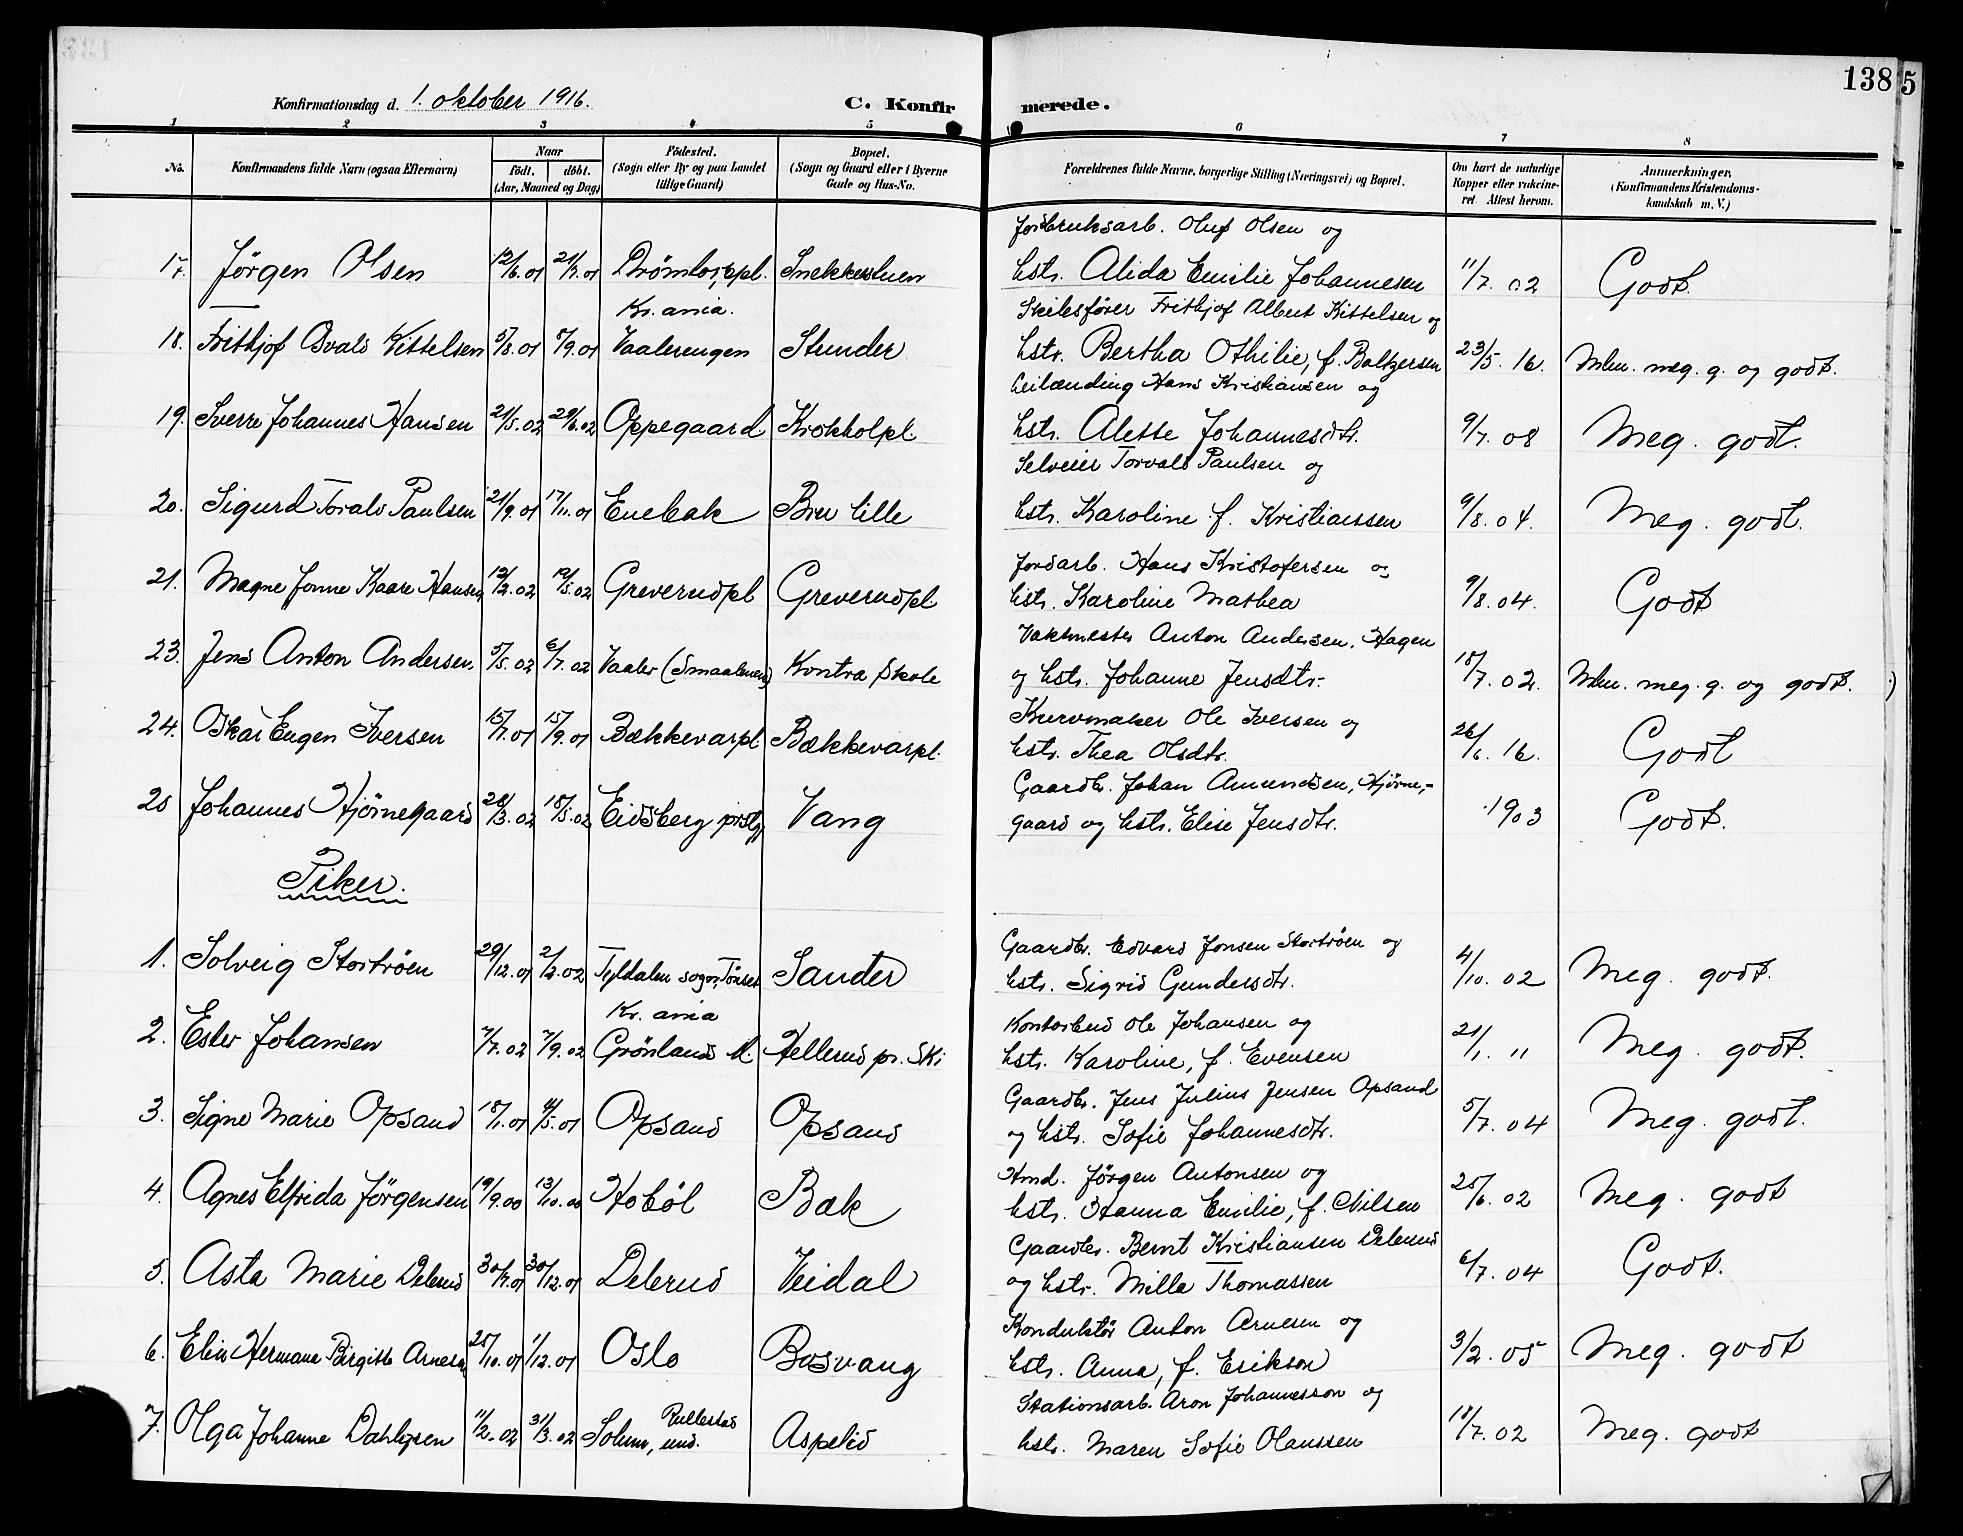 138
5
Konfirmationsdag d. 1. oktober 1916.
C. Konfir merede.
1 2 3 4 5 6 7 8
No.
Konfirmandens fulde Navn (ogsaa Efternavn)
Naar
födt. döbt.
(Aar, Maaned og Dag)
Födested.
(Sogn eller By og paa Landet
tillige Gaard)
Bopæl.
(Sogn og Gaard eller i Byerne
Gade og Hus-No.
Forældrenes fulde Navne, borgerlige Stilling (Næringsvei) og Bopæl.
Om havt de naturlige
Kopper eller vakcine-
ret. Attest herom.
Anmærkninger.
(Konfirmandens Kristendoms-
kundskab m. V.)
Jordbruksarb. Oluf Olsen og
17. Jörgen Olsen 12/6.01 21/7.01 Drömtorppl. Snekkerstuen hstr. Alida Emilie Johannesen 11/7. 02 Godt.
Kr.ania. Skibsförer Frithjof Albert Kittelsen og
18. Frithjof Osvald Kittelsen 5/8.01 5/9.01 Vaalerengen Stunder hstr. Bertha Othilie, f. Baltzersen 23/5. 16. Mlm. meg. g. og godt.
Leilænding Hans Kristiansen og
19. Sverre Johannes Hansen 21/5.02 29/6.02 Oppegaard Krokholpl hstr. Alette Johannesdtr. 9/7. 08 Meg. godt.
Selveier Torvald Paulsen og
20. Sigurd Torvald Paulsen 21/9.01 17/11.01 Enebak Bru lille hstr. Karoline f. Kristianssen 9/8. 04. Meg. godt.
Jordarb. Hans Kristofersen og
21. Magne Jonne Kaare Hansen 12/2.02 19/5.02 Greverudpl Greverudpl hstr. Karoline Mathea 9/8. 04. Godt
Vaktmester Anton Andersen, Hagen
23. Jens Anton Andersen 5/5.02 6/7.02 Vaaler (Smaalenene) Kontra skole og hstr. Johanne Jensdtr. 18/7. 02. Mlm. meg. g. og godt.
Kurvmaker Ole Iversen og
24. Oskar Eugen Iversen 15/7.01 15/9.01 Bækkevarpl Bækkevarpl. hstr. Thea Olsdtr. 26/6. 16. Godt
Gaardbr. Johan Amundsen, Hjörne-
25 Johannes Hjörnegaard 28/3.02 18/5.02 Eidsberg prstgj Vang gaard og hstr. Elise Jensdtr. 1903 Godt.
Piker.
Gaardbr. Edvard Jonsen Storröen og
1. Solveig Storröen 29/12.01 2/2.02 Tyldalen sogn, Tönset Sander hstr. Sigrid Gundersdtr. 4/10. 02 Meg. godt.
Kr. ania Kontorbud Ole Johansen og
2. Ester Johansen 7/7.02 7/9.02 Grönlands M. Hellerud pr. Ski hstr. Karoline, f. Evensen 21/1. 11 Meg. godt.
Gaardbr. Jens Julius Jensen Opsand
3. Signe Marie Opsand 18/1.01 4/5.01 Opsand Opsand og hstr. Sofie Johannesdtr. 5/7. 04 Meg. godt.
Hmd. Jörgen Antonsen og
4. Agnes Elfrida Jörgensen 19/9.00 13/10.00 Hoböl Bæk hstr. Hanna Emilie, f. Nilsen 25/6. 02 Meg. godt
Gaardbr. Bernt Kristiansen Delerud
5. Asta Marie Delerud 30/9.01 30/12.01 Delerud Veidal og hstr. Milla Thomassen 6/7. 04 Godt.
Konduktör Anton Arnesen og
6. Elin Hermana Birgitte Arnesen 25/10.01 1/12.01 Oslo Bosvang hstr. Anna, f. Erikson 3/2. 05 Meg. godt
Rullestad Stationsarb. Aron Johannesson og
7. Olga Johanne Dahlgren 11/2.02 31/3.02 Solum, und. Aspelid hstr. Maren Sofie Olaussen 18/7. 02 Meg. godt